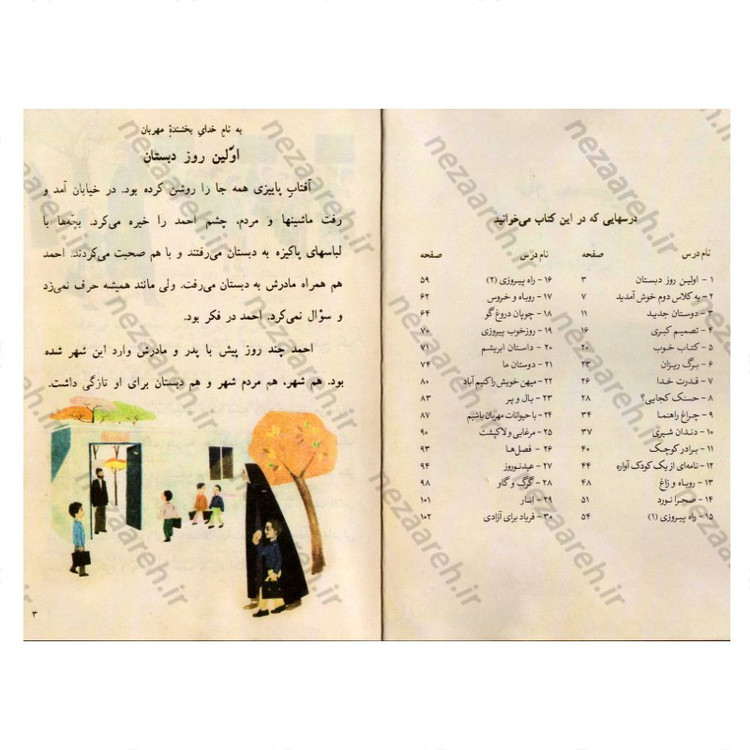 درسهایی که در این کتاب می‌خوانید
نام درس صفحه نام درس صفحه
۱ - اولین روز دبستان ۳ ۱۶ - راه پیروزی (۲) ۵۹
۲ - به کلاس دوم خوش آمدید ۷ ۱۷ - روباه و خروس ۶۲
۳ - دوستان جدید ۱۱ ۱۸ - چوپان دروغ گو ۶۴
۴ - تصمیم کبری ۱۶ ۱۹ - روز خوب پیروزی ۷۰
۵ - کتاب خوب ۲۰ ۲۰ - داستان ابریشم ۷۱
۶ - برگ ریزان ۲۳ ۲۱ - دوستان ما ۷۴
۷ - قدرت خدا ۲۶ ۲۲ - میهن خویش را کنیم آباد ۸۰
۸ - حسنک کجایی؟ ۲۸ ۲۳ - بال و پر ۸۳
۹ - چراغ راهنما ۳۴ ۲۴ - با حیوانات مهربان باشیم ۸۷
۱۰ - دندان شیری ۳۷ ۲۵ - مرغابی و لاکپشت ۹۰
۱۱ - برادر کوچک ۴۰ ۲۶ - فصل‌ها ۹۳
۱۲ - نامه‌ای از یک کودک آواره ۴۴ ۲۷ - عید نوروز ۹۴
۱۳ - روباه و زاغ ۴۸ ۲۸ - گرگ و گاو ۹۸
۱۴ - صحرا نورد ۵۱ ۲۹ - انار ۱۰۱
۱۵ - راه پیروزی (۱) ۵۴ ۳۰ - فریاد برای آزادی ۱۰۲
به نام خدای بخشندهٔ مهربان
اوّلین روز دبستان
آفتاب پاییزی همه جا را روشن کرده بود. در خیابان آمد و
رفت ماشینها و مردم، چشم احمد را خیره می‌کرد. بچّه‌ها با
لباسهای پاکیزه به دبستان می‌رفتند و با هم صحبت می‌کردند. احمد
هم همراه مادرش به دبستان می‌رفت. ولی مانند همیشه حرف نمی‌زد
و سؤال نمی‌کرد. احمد در فکر بود.
احمد چند روز پیش با پدر و مادرش وارد این شهر شده
بود. هم شهر، هم مردم شهر و هم دبستان برای او تازگی داشت.
۳
nezaareh.ir
nezaareh.ir
nezaareh.ir
nezaareh.ir
nezaareh.ir
nezaareh.ir
nezaareh.ir